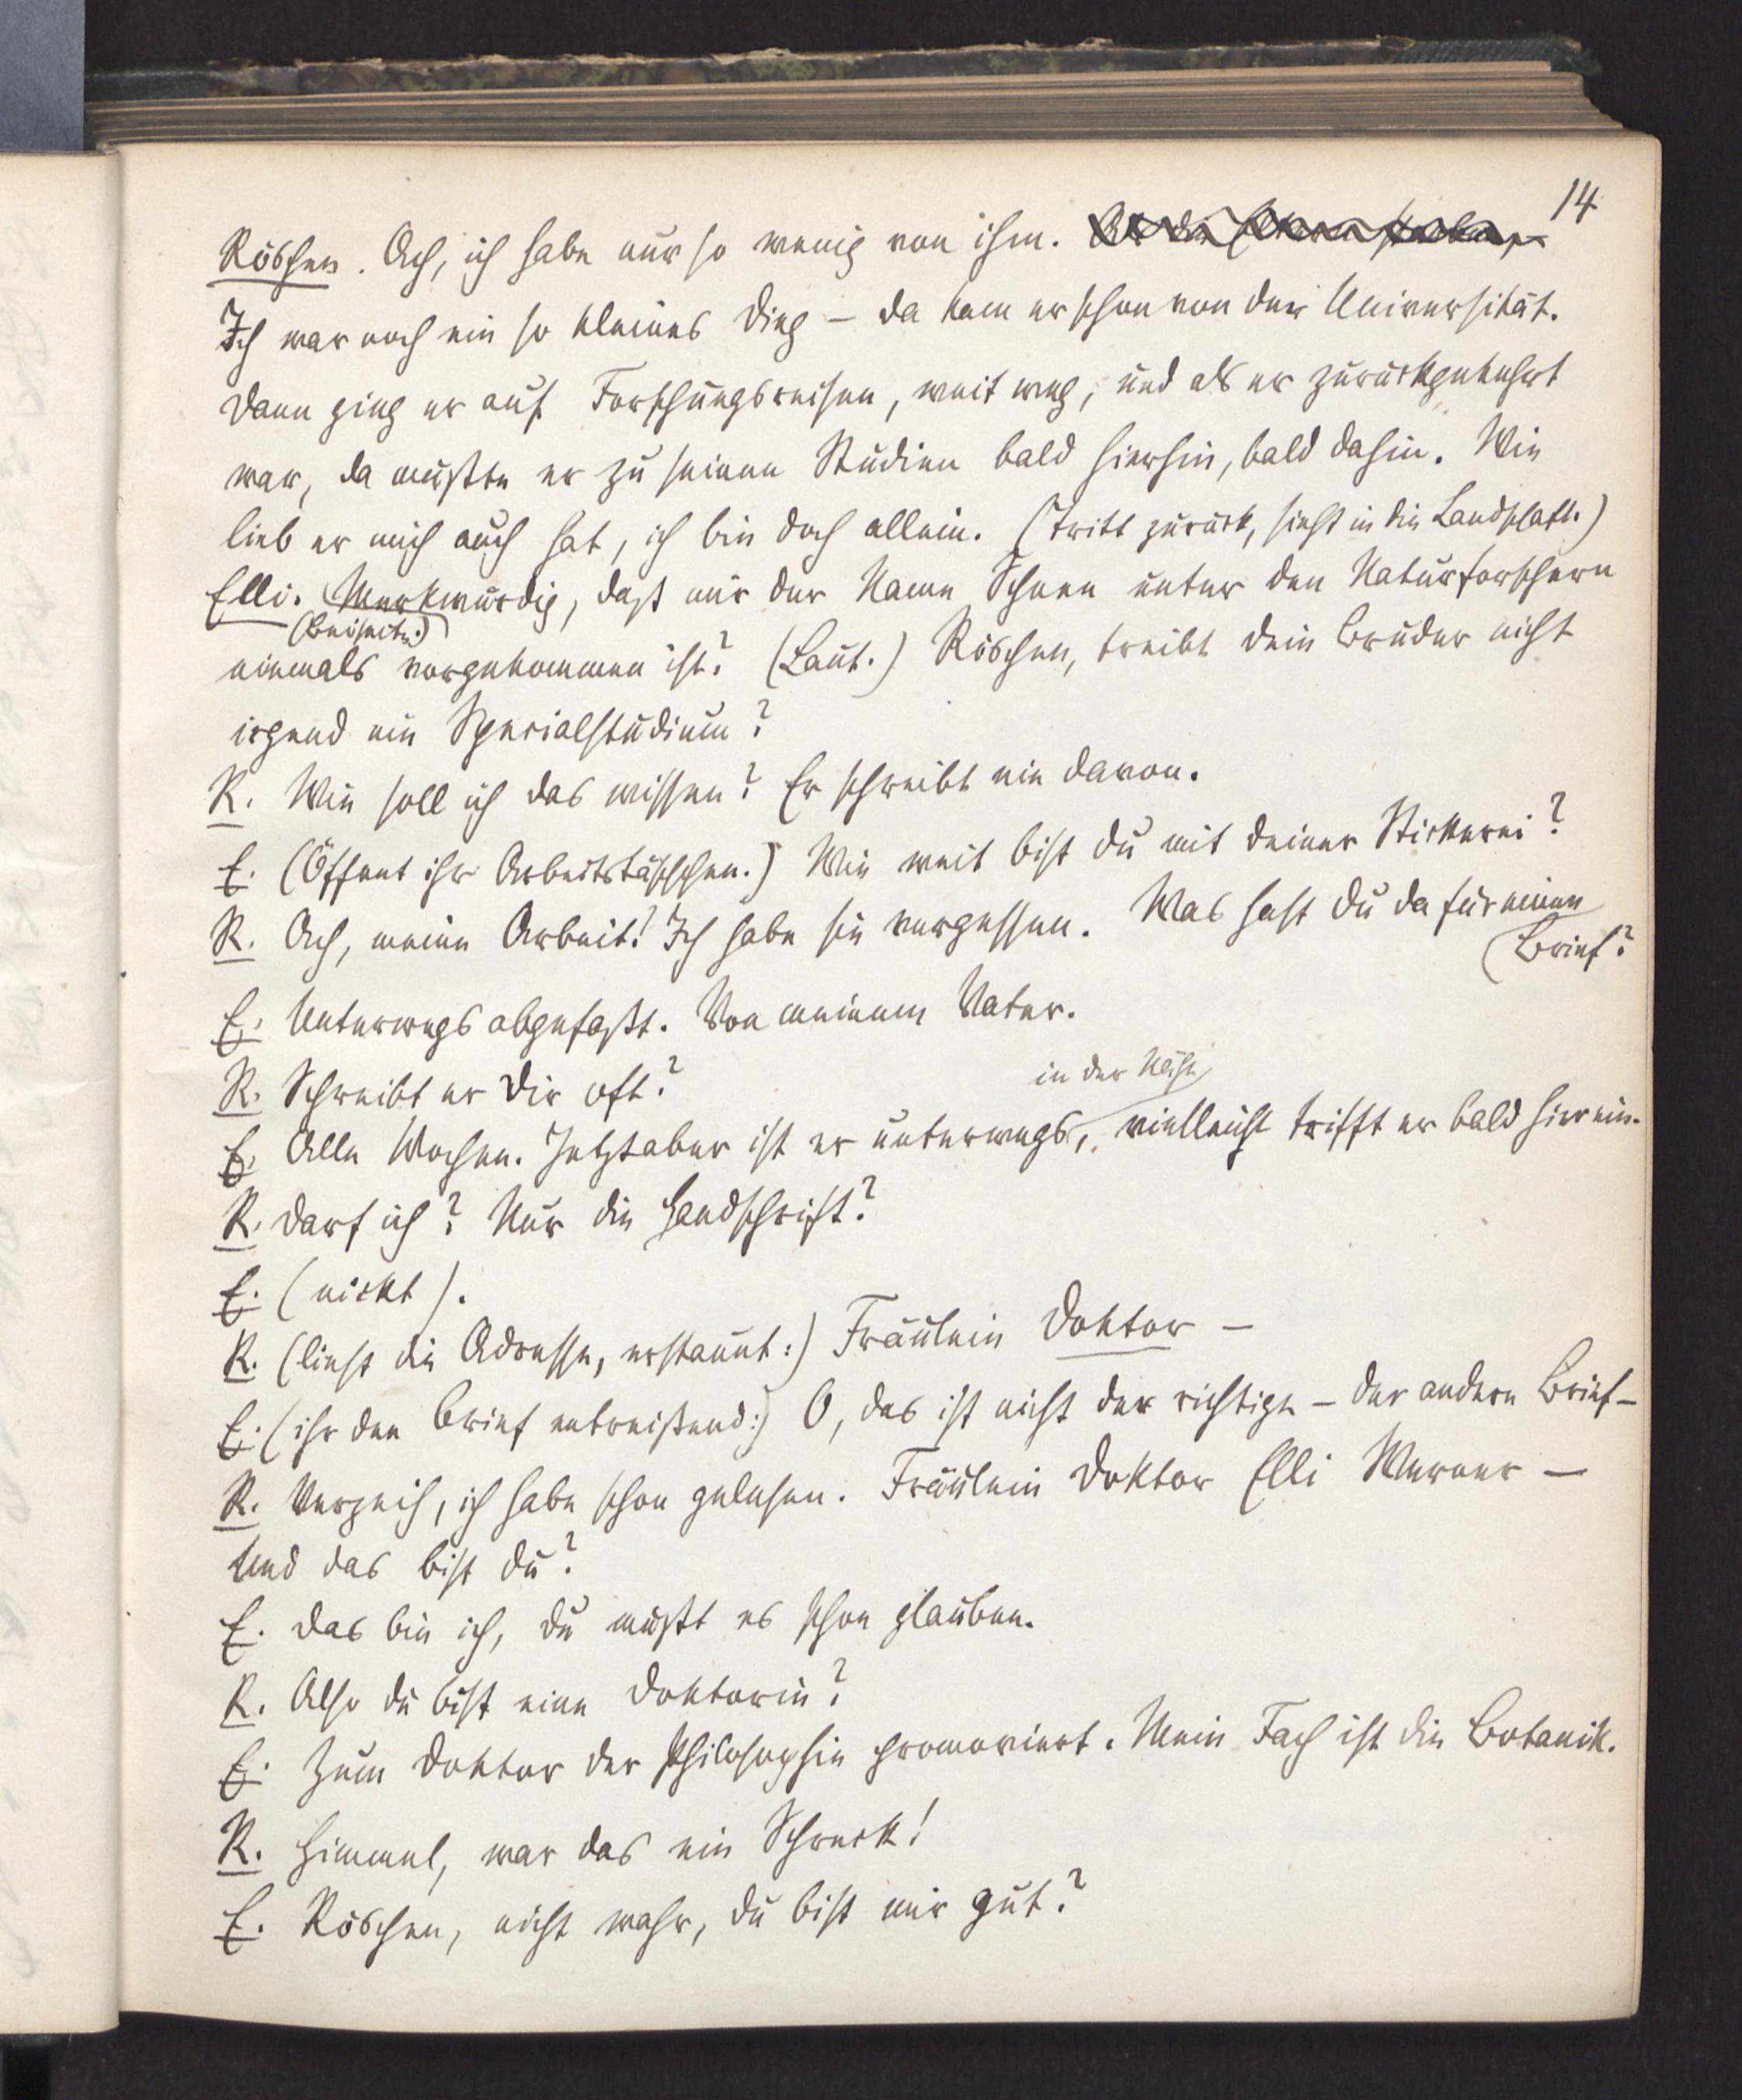 14
Röschen. Ach, ich habe nur so wenig von ihm.
Ich war noch ein so kleines Ding – da kam er schon von der Universität.
Dann ging er auf Forschungsreisen, weit weg, und als er zurückgekehrt
war, da mußte er zu seinen Studien bald hierhin, bald dahin. Wie
lieb er mich auch hat, ich bin doch allein. (Tritt zurück, sieht in die Landschaft.)
Elli. Merkwürdig, daß mir der Name Scheen unter den Naturforschern
(Beiseite:)
niemals vorgekommen ist? (Laut.) Röschen, treibt dein Bruder nicht
irgend ein Spezialstudium?
R. Wie soll ich das wissen? Er schreibt nie davon.
E. (Öffnet ihr Arbeitstäschchen.) Wie weit bist du mit deiner Stickerei?
R. Ach, meine Arbeit! Ich habe sie vergessen. Was hast du da für einen
Brief?
E. Unterwegs abgefaßt. Von meinem Vater.
R. Schreibt er Dir oft?
in der Nähe,
E. Alle Wochen. Jetzt aber ist er unterwegs, vielleicht trifft er bald hier ein.
R. Darf ich? Nur die Handschrift?
E. (nickt).
R. (liest die Adresse, erstaunt:) Fräulein Doktor –
E. (ihr den Brief entreißend:) O, das ist nicht der richtige – der andere Brief –
R. Verzeih, ich habe schon gelesen. Fräulein Doktor Elli Werner –
Und das bist du?
E. Das bin ich, du mußt es schon glauben.
R. Also du bist eine Doktorin?
E. Zum Doktor der Philosophie promoviert. Mein Fach ist die Botanik.
R. Himmel, war das ein Schreck!
E. Röschen, nicht wahr, du bist mir gut?